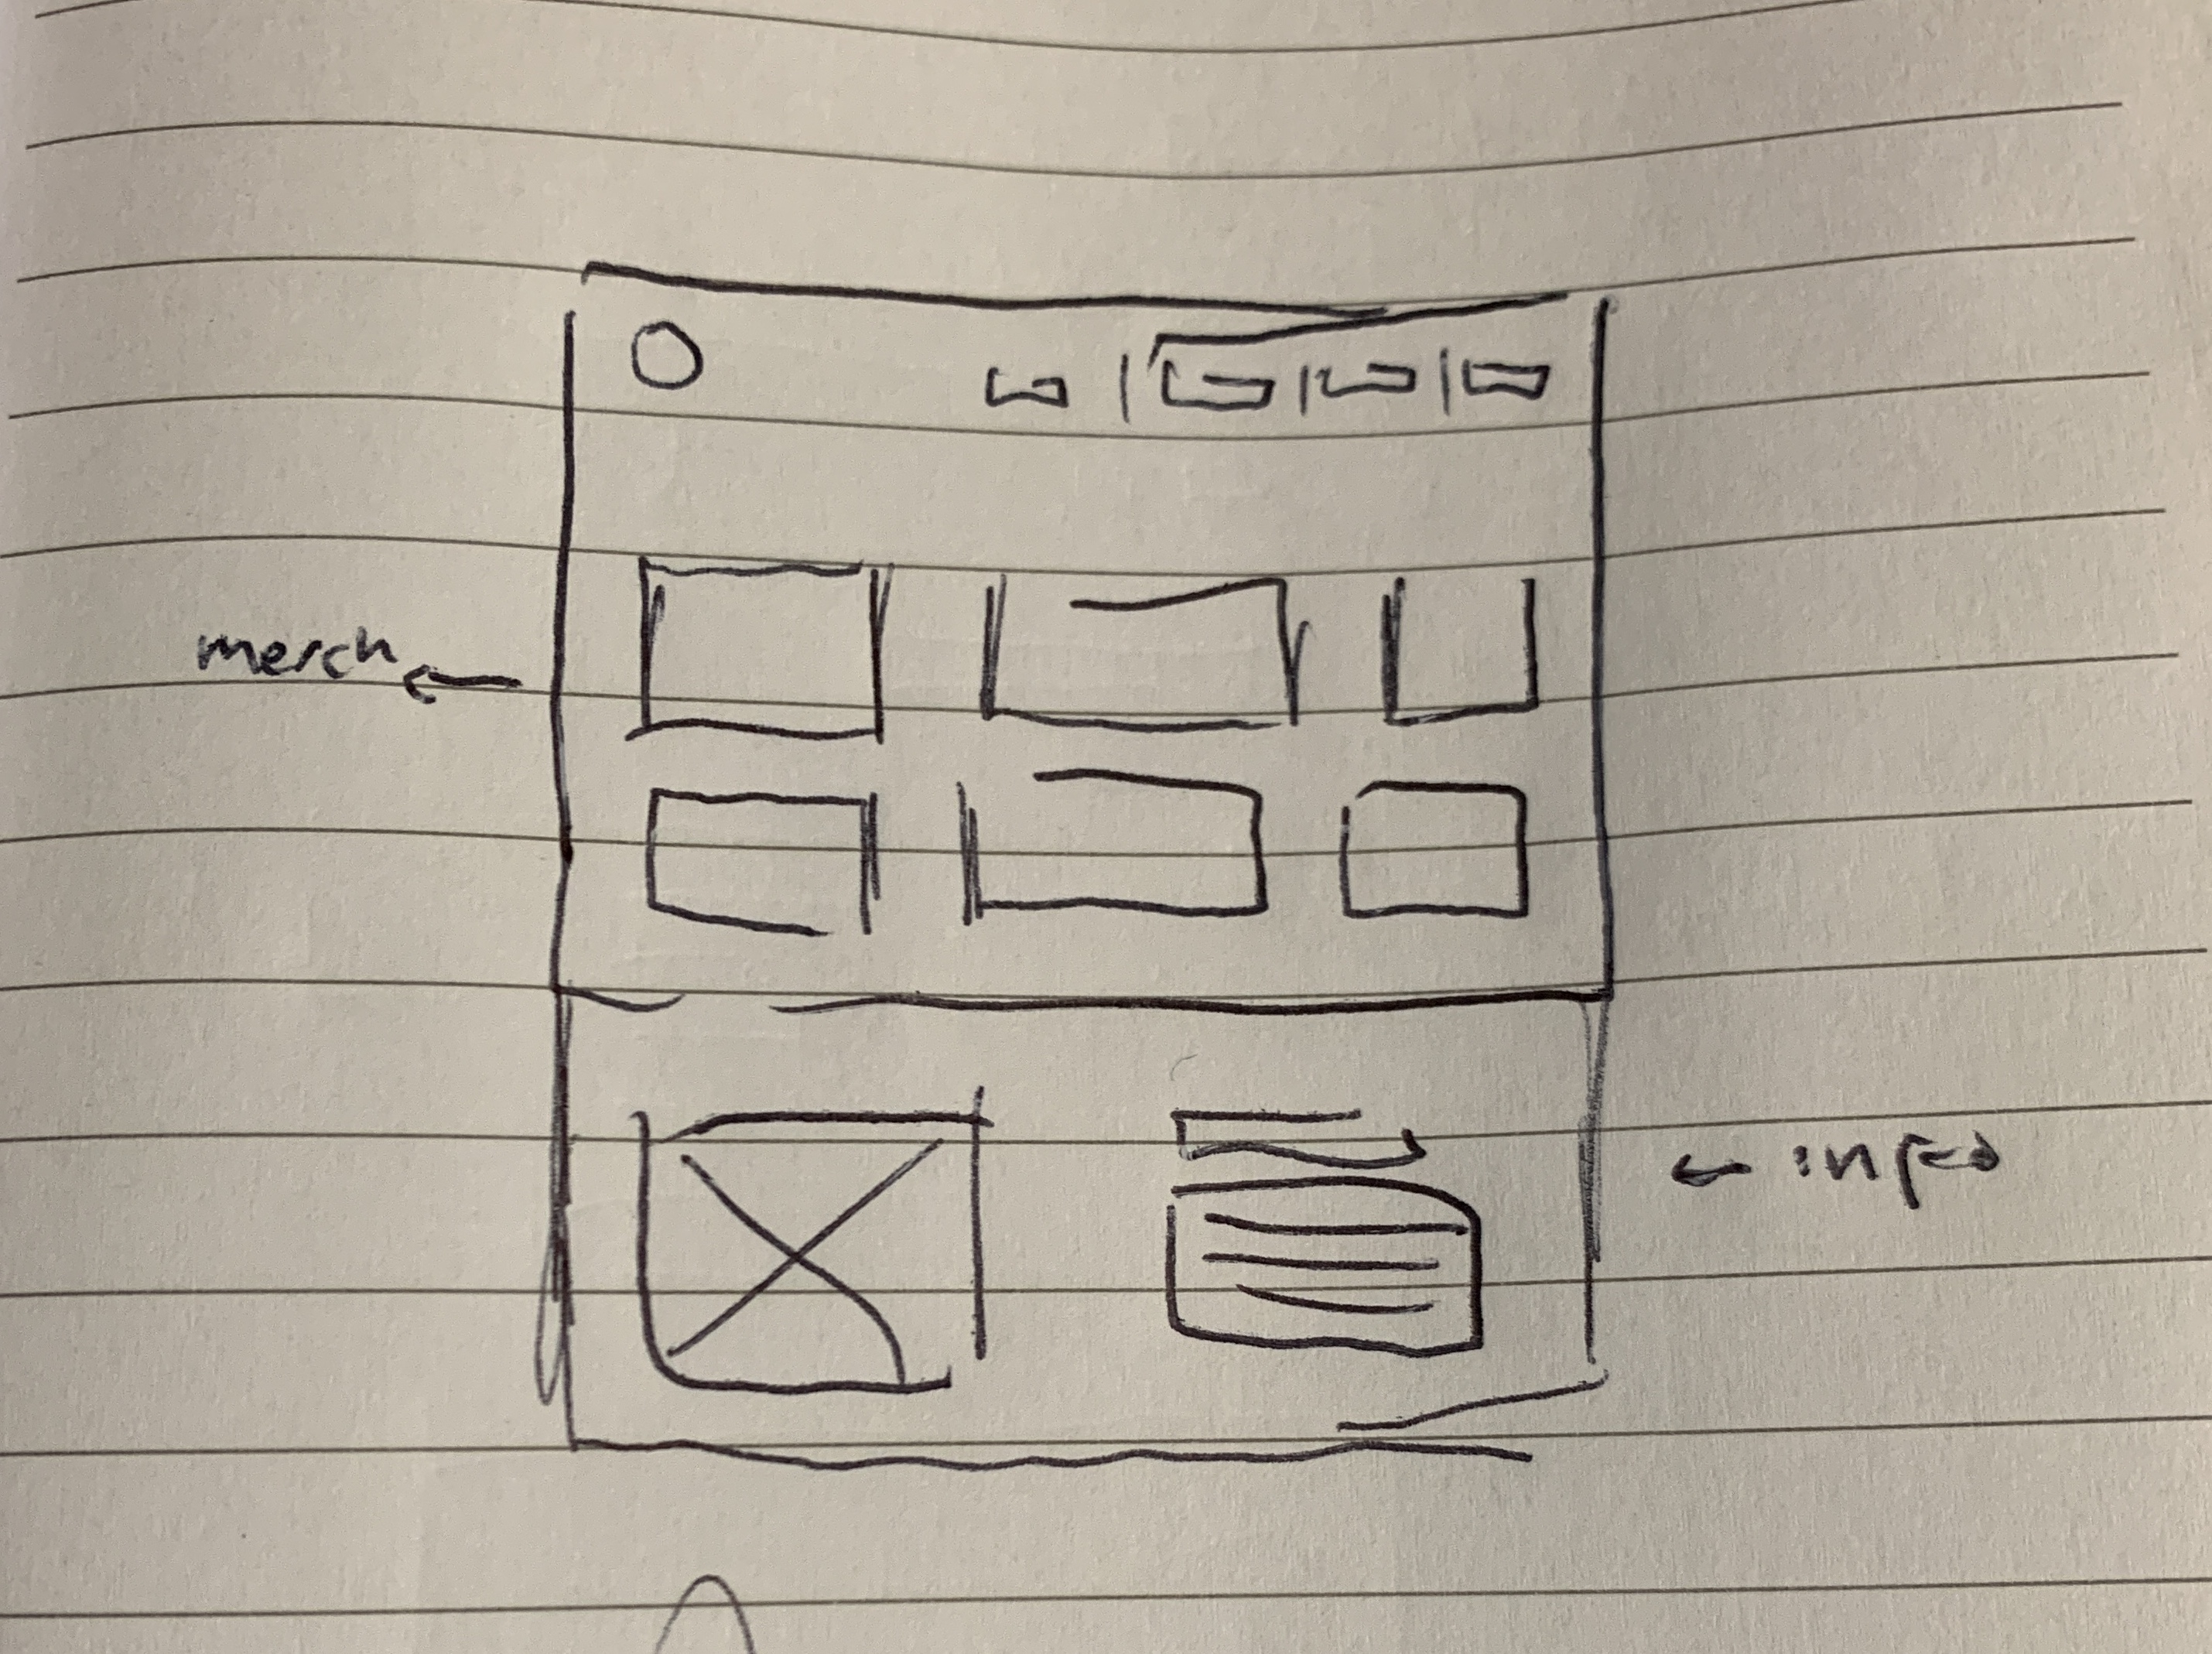 merch
info